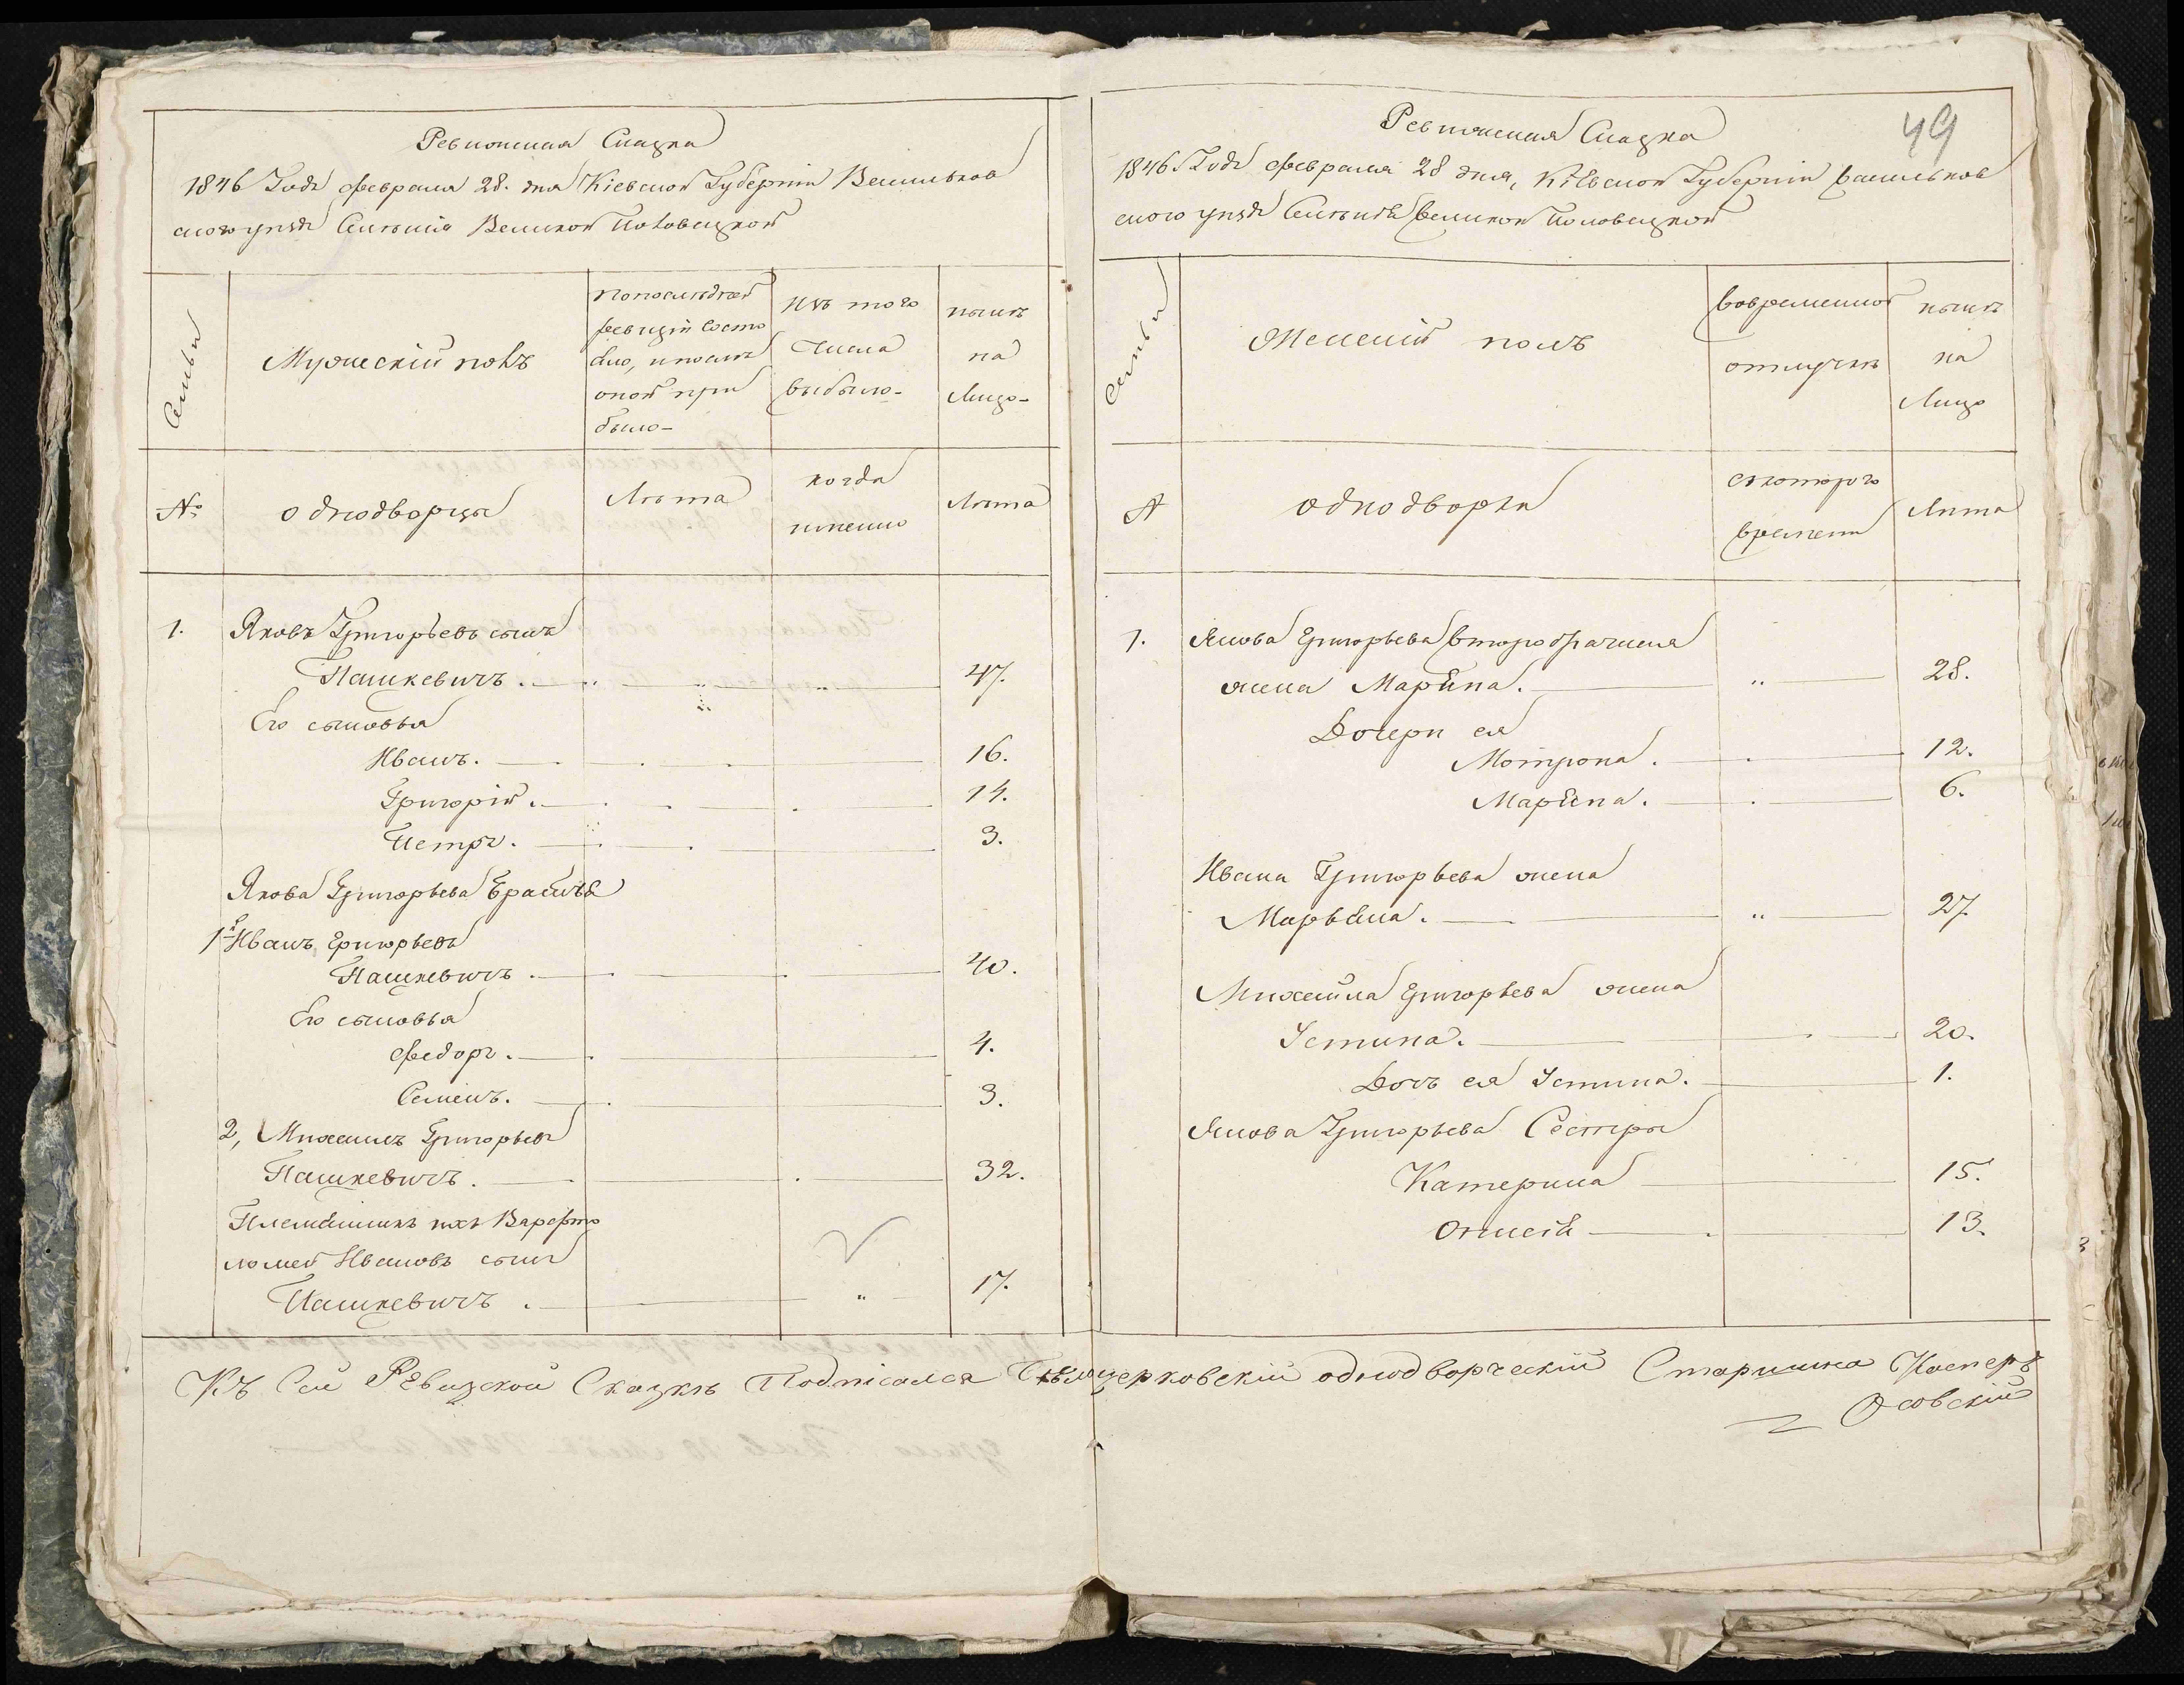 Ревизская Сказка
1846 Года февраля 28. дня Кіевской Губерніи Васильков
ского уезда Селенія Великой Половецкой
Семьи
Мужескій полъ
По последней
ревизіи состо
яло, и после
оной при
было-
Изъ того
Числа
выбыло-
ныне
на
Лицо-
№
однодворцы
Лѣта
когда
именно
Лѣта
1. Яковъ Григорьевъ сынъ
Пашкевичъ. 47.
Его сыновья
Иванъ. 16.
Григорій. 14.
Петръ. 3.
Якова Григорьева Братья
1й Иванъ Григорьевъ
Пашкевичъ. 40.
Его сыновья
Федоръ. 4.
Семенъ. 3.
2, Михаилъ Григорьевъ
Пашкевичъ. 32.
Племянникъ ихъ Варфо
ломей Ивановъ сынъ
Пашкевичъ. 17.
49
Ревизская Сказка
1846 Года февраля 28 дня, Кіевской Губерніи Васильков
ского уезда Селенія Великой Половецкой
Семьи
Женскій полъ
Во временной
отлучке
ныне
на
Лицо
№
однодворки
с котораго
времени
Лѣта
1. Якова Григорьева второбрачная
жена Марьяна. 28.
Дочери ея
Мотрона. 12.
Марьяна. 6.
Ивана Григорьева жена
Марьяна. 27
Михайла Григорьева жена
Устина. 20.
Дочь ея Устина. 1.
Якова Григорьева Сестры
Катерина 15.
Онисія 13.
Къ Сей Ревизской Сказкѣ Подписался Белоцерковскій однодворческій Старшина Касперъ
Осовскій